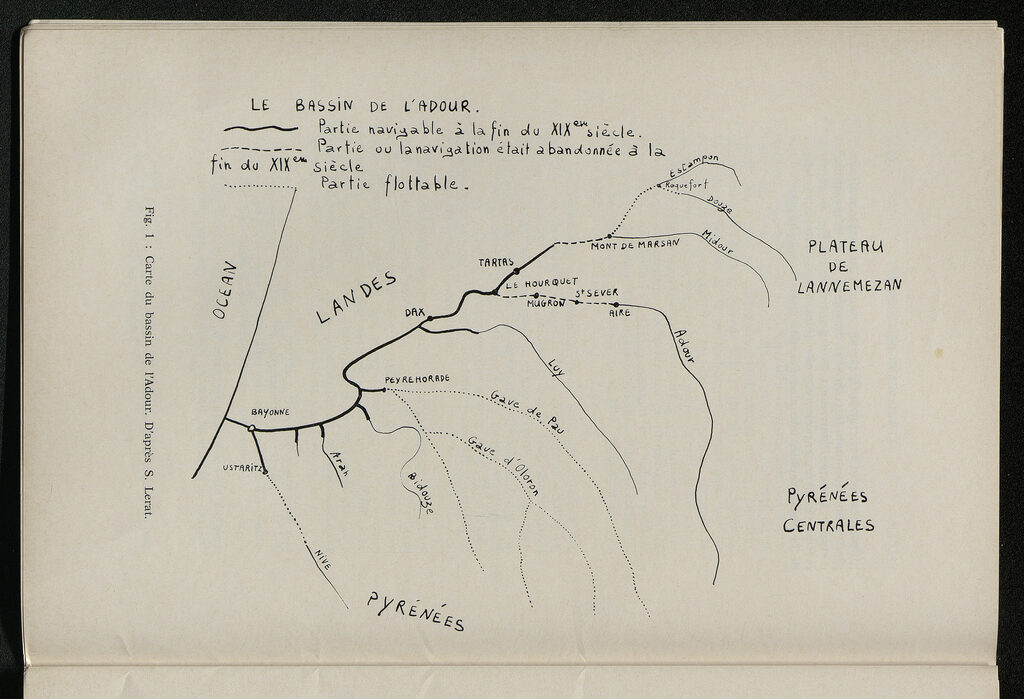 LE BASSIN DE L'ADOUR.
Partie navigable à la fin du XIXème siècle.
Partie ou la navigation était abandonnée à la
fin du XIXème siècle
Partie flottable.
Estampon
Roquefort
Douze
Midour
MONT DE MARSAN
PLATEAU
DE
LANNEMEZAN
OCEAN
LANDES
TARTAS
LE HOURQUET
MUGRON
St SEVER
AIRE
DAX
Adour
LUY
PEYREHORADE
Gave de Pau
BAYONNE
Gave d'Oloron
USTARITZ
Arah
Bidouze
NIVE
PYRÉNÉES
CENTRALES
PYRÉNÉES
Fig. 1 : Carte du bassin de l'Adour. D'après S. Lerat.